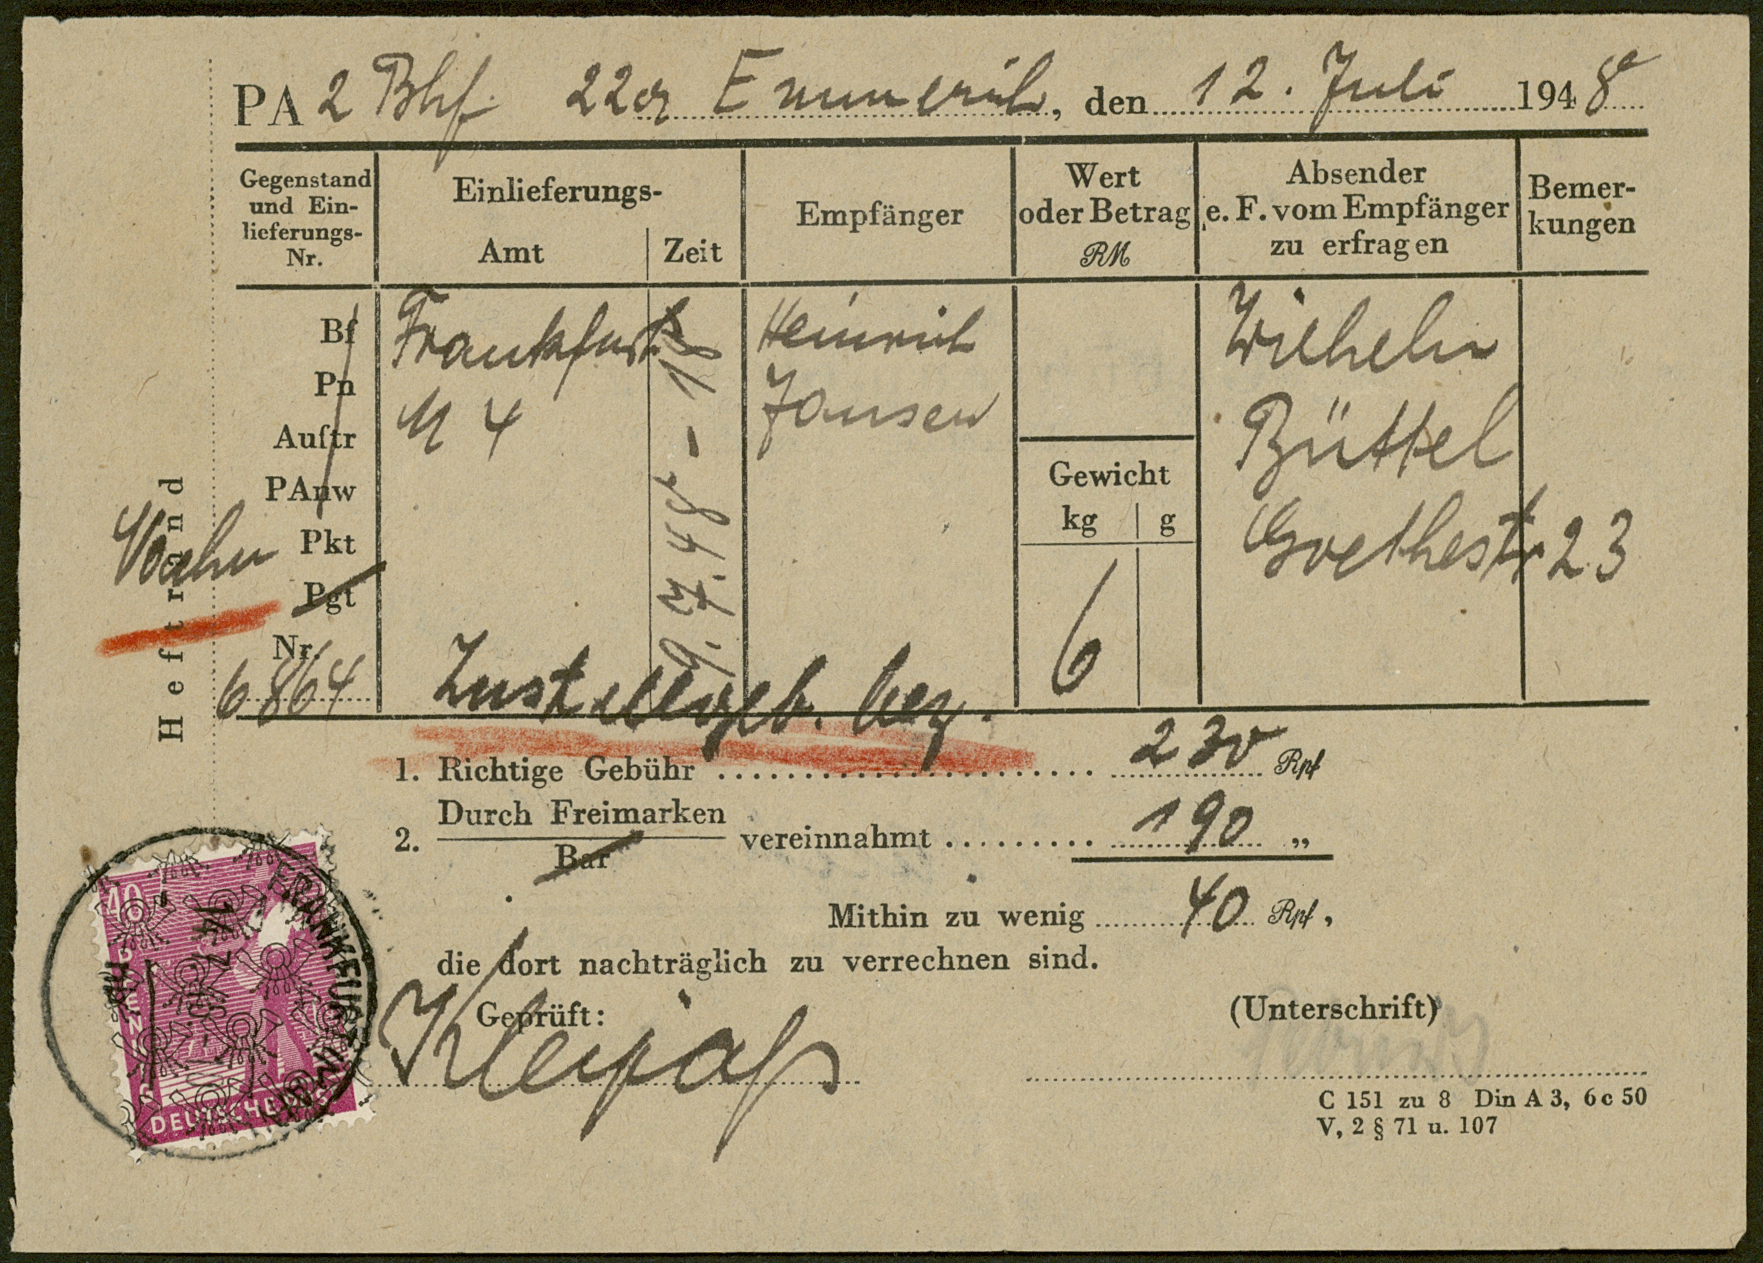 PA 2 Bhf 22a Emmerich, den 12. Juli 1948
Gegenstand und Ein-lieferungs-Nr.
Einlieferungs-
Amt
Zeit
Empfänger
Wert oder Betrag RM
Absender e. F. vom Empfänger zu erfragen
Bemer-kungen
Bf
Pn
Auftr
PAnw
Pkt
Pgt
Nr.
6864
Heftrand
Frankfurt
M 4
9.7.48 - 18
Heinrich
Jansen
Gewicht
kg g
6
Wilhelm
Büttel
Goethestr 23
Zustellgeb. bez.
1. Richtige Gebühr 230 Rpf
2. Durch Freimarken
Bar
vereinnahmt 190 „
Mithin zu wenig 40 Rpf,
die dort nachträglich zu verrechnen sind.
Geprüft:
(Unterschrift)
C 151 zu 8 Din A 3, 6 c 50
V, 2 § 71 u. 107
40
PFENNIG
DEUTSCHE POST
FRANKFURT (MAIN)